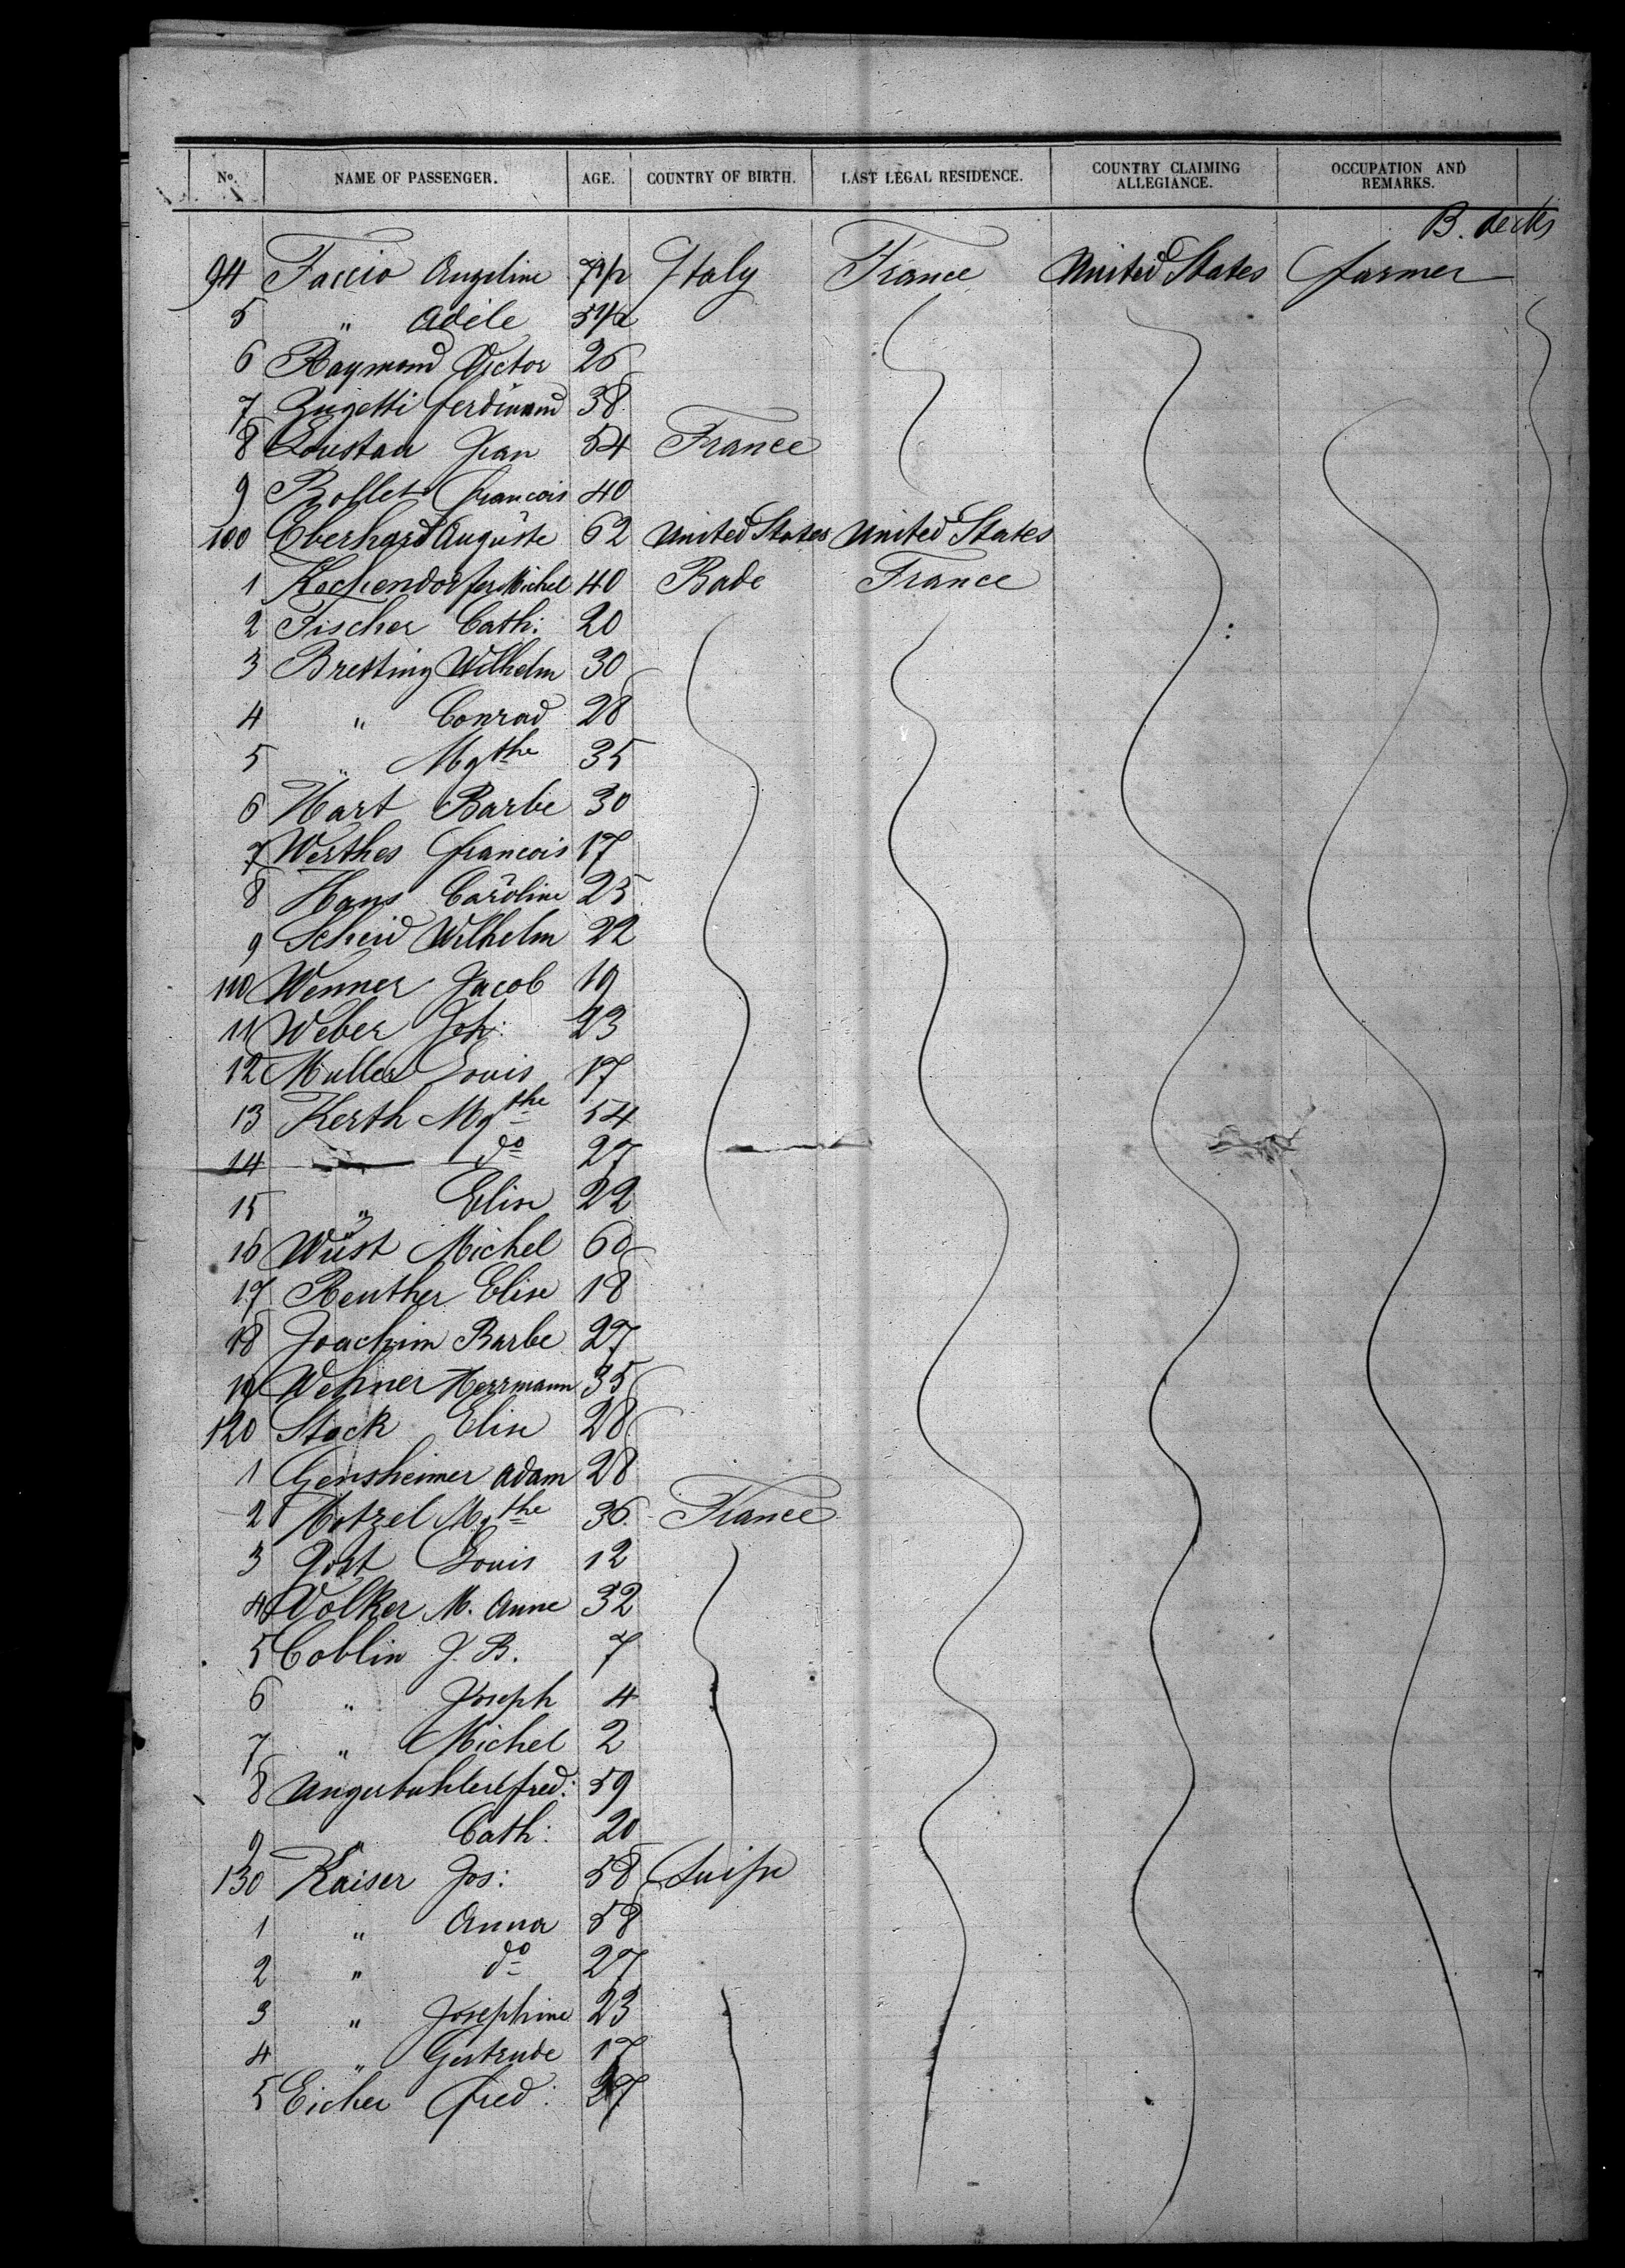 No. NAME OF PASSENGER. AGE. COUNTRY OF BIRTH. LAST LEGAL RESIDENCE. COUNTRY CLAIMING ALLEGIANCE. OCCUPATION AND REMARKS.
B. decks
94 Faccio Angeline 7 1/2 Italy France United States farmer
5 " Adèle 5 1/2
6 Raymond Victor 26
7 Zugetti ferdinand 38
8 Loustau Jean 54 France
9 Rollet francois 40
100 Eberhard Auguste 62 United States United States
1 Kochendorfer Michel 40 Bade France
2 Fischer Cath: 20
3 Bretting Wilhelm 30
4 " Conrad 28
5 " Mgthe 35
6 Hart Barbe 30
7 Werthes francois 17
8 Hans Caroline 25
9 Scheid Wilhelm 22
110 Wenner Jacob 19
11 Weber Joh: 23
12 Muller Louis 17
13 Kerth Mgthe 54
14 do 27
15 " Elise 22
16 Wüst Michel 60
17 Reuther Elise 18
18 Joachim Barbe 27
19 Wehner Herrmann 35
120 Stock Elise 28
1 Gensheimer Adam 28
2 Motzel Mgthe 36 France
3 Jost Louis 12
4 Volker M. Anne 32
5 Coblin J. B. 7
6 " Joseph 4
7 " Michel 2
8 Ungerbuhler fred: 59
9 " Cath: 20
130 Kaiser Jos: 58 Suisse
1 " Anna 58
2 " do 27
3 " Josephine 23
4 " Gertrude 17
5 Eicher fred: 27